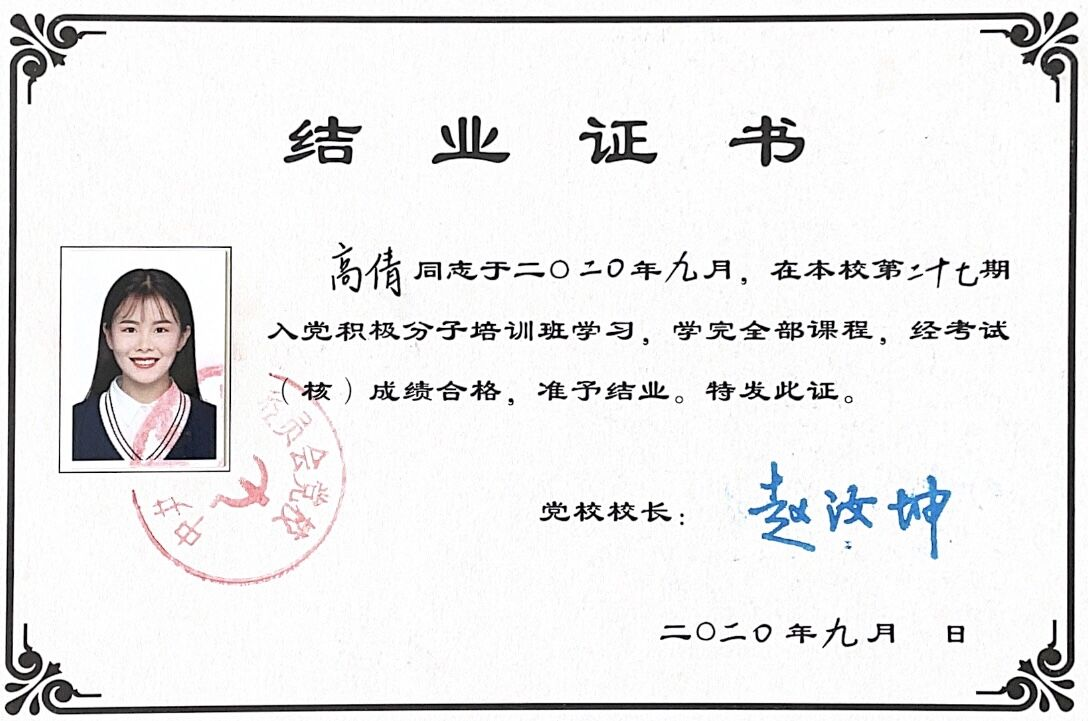 结业证书
高倩同志于二〇二〇年九月，在本校第二十七期
入党积极分子培训班学习，学完全部课程，经考试
（核）成绩合格，准予结业。特发此证。
党校校长：赵汝坤
二〇二〇年九月 日
中共
委员会党校